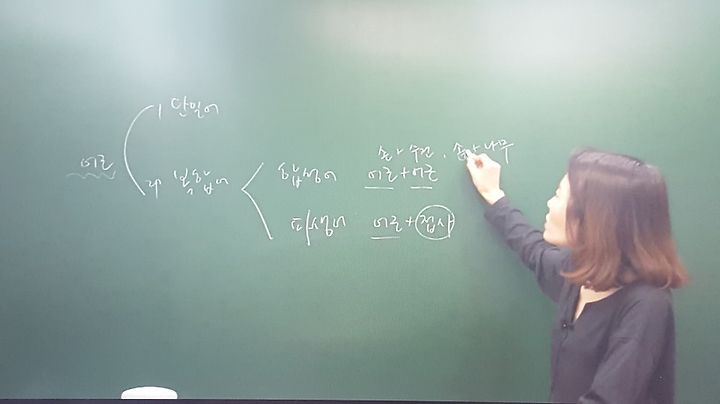 1 단일어
어근
2↑ 복합어
손+수건,
나무
합성어 어근+어근
파생어 어근+접사